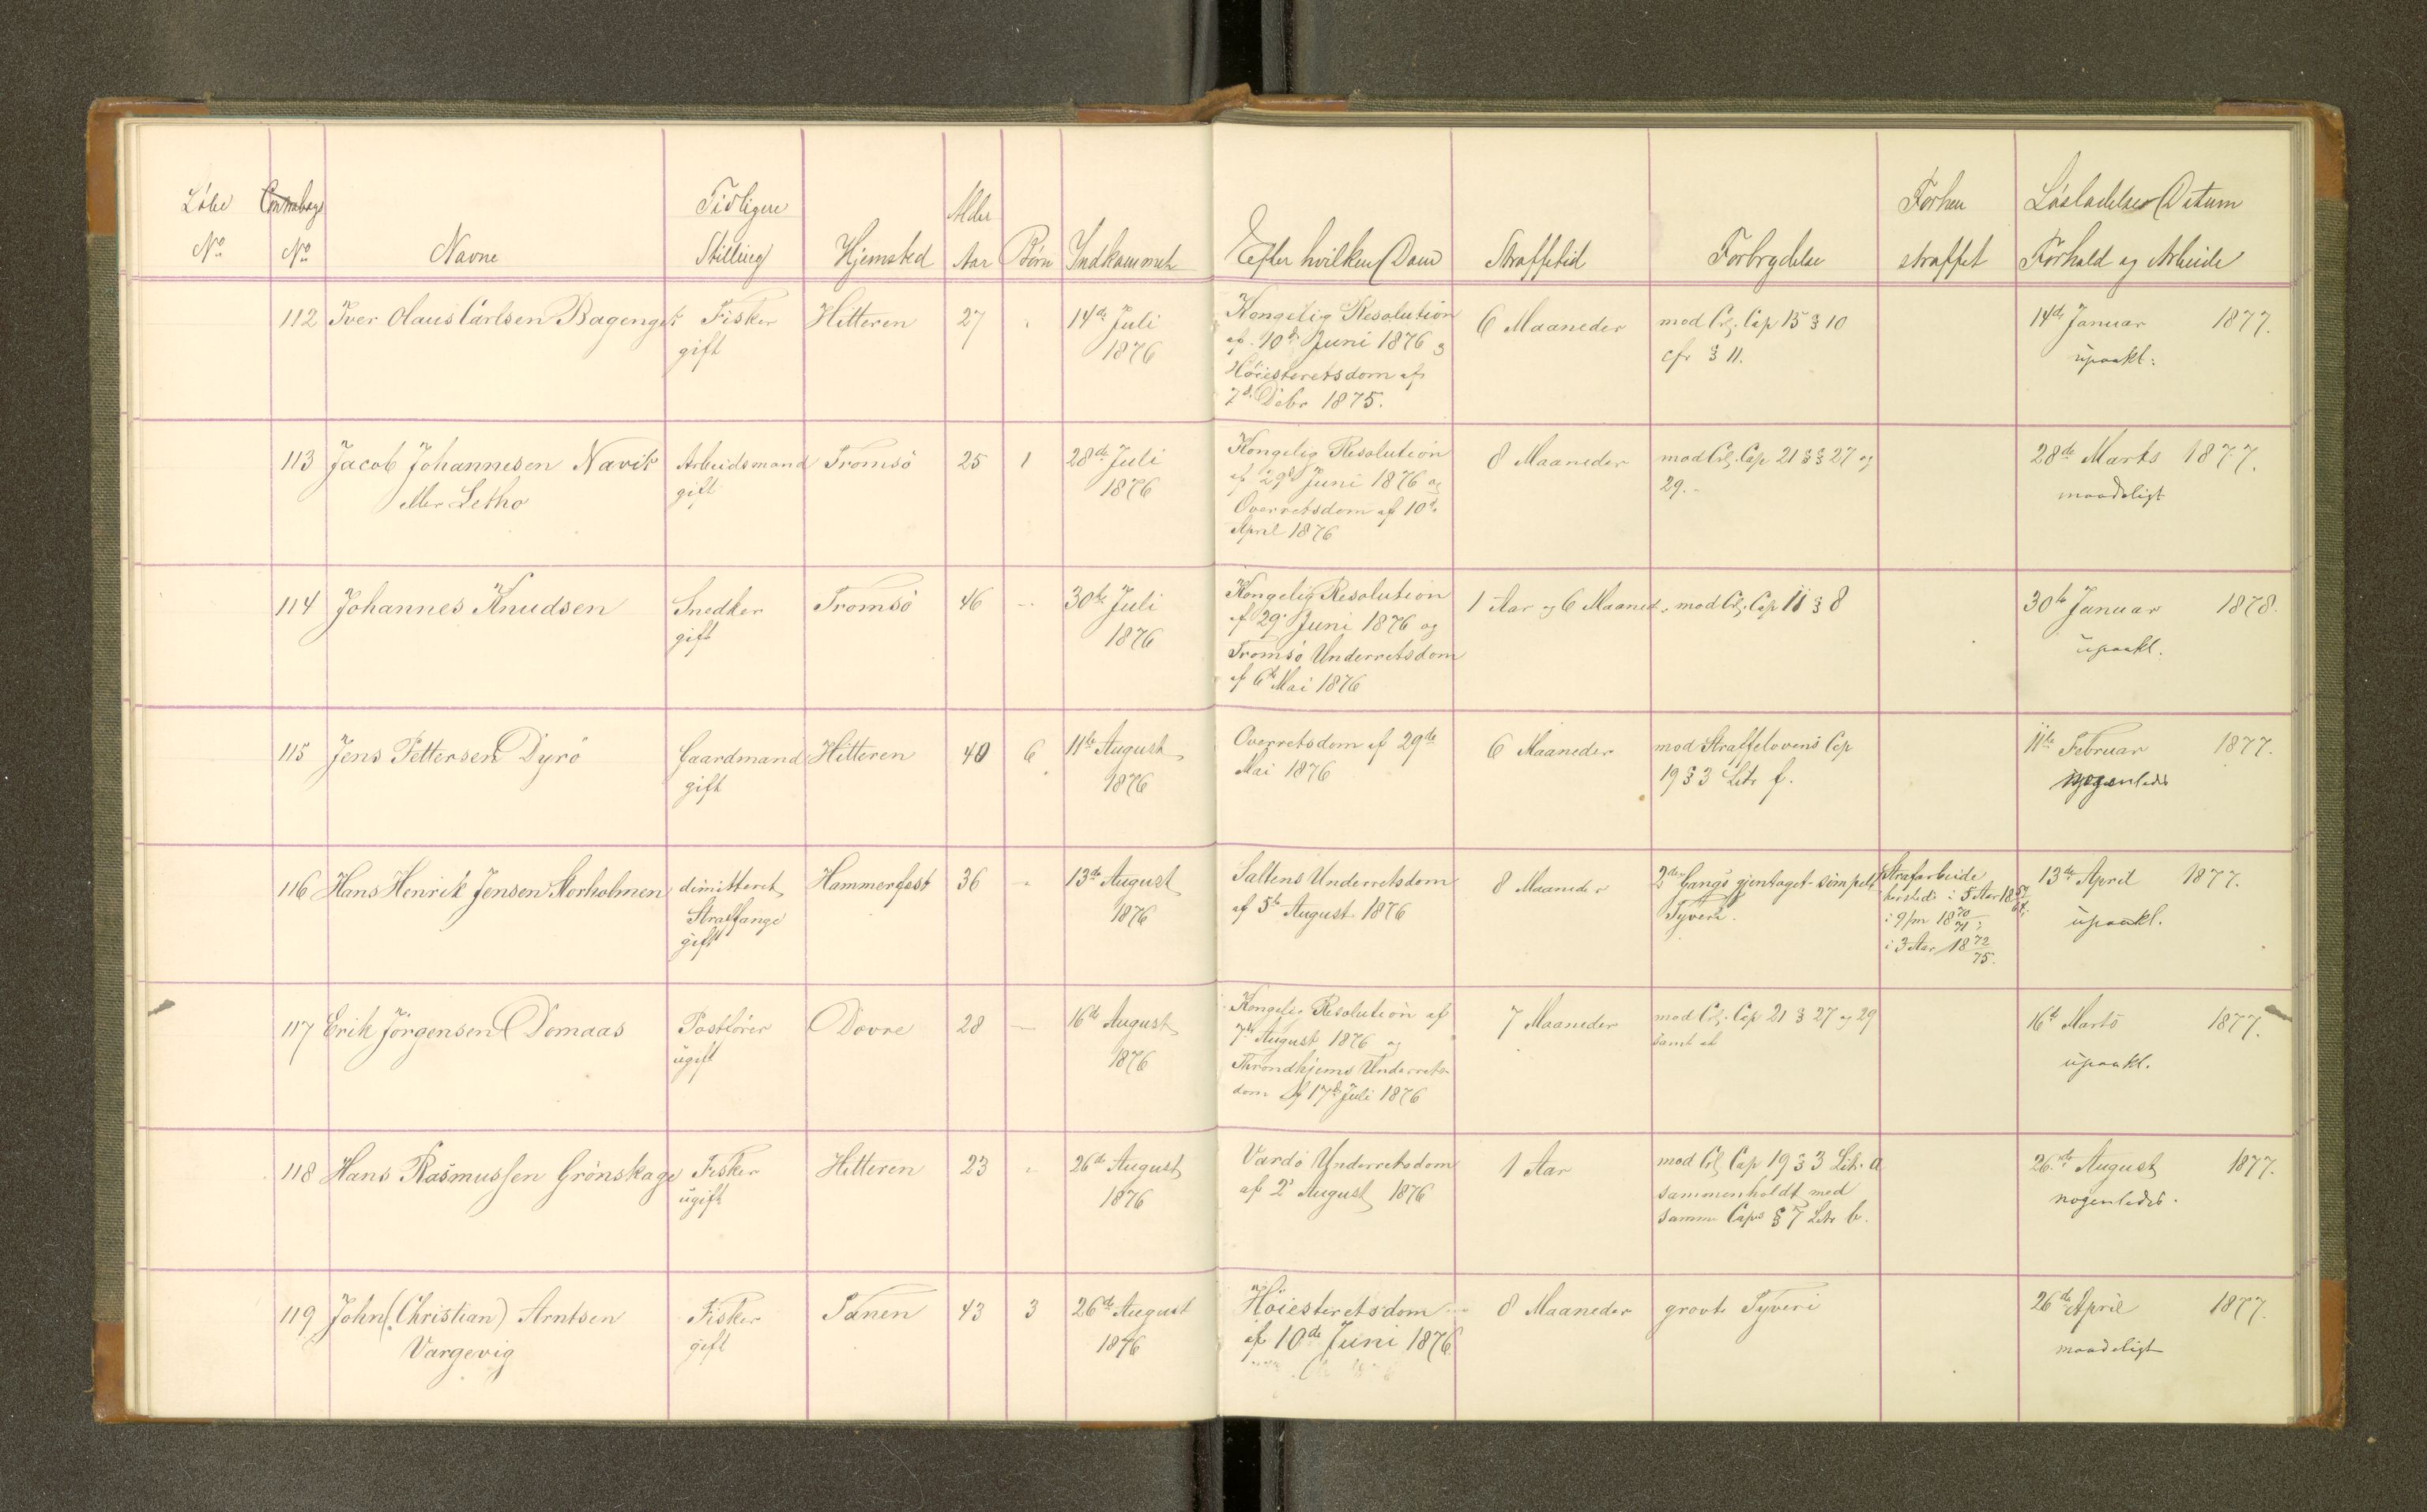 Løbe No
No
Navne
Tidligere Stilling
Hjemsted
Alder Aar
Børn
Indkommet
Efter hvilken Dom
Straffetid
Forbrydelse
Forhen straffet
Løsladelses Datum
Forhold og Arbeide
112 Iver Olaus Carlsen
Fisker
gift
Hitteren
27
14de Juli
1876
Kongelig Resolution
af 10de Juni 1876 og
Höiesteretsdom af
7de Debr 1875.
6 Maaneder
mod Crl. Cap 15 § 10
cfr § 11.
14de Januar 1877.
upaakl:
113 Jacob Johannesen Navik
eller Letho
Arbeidsmand
gift
Tromsö
25
1
28de Juli
1876
Kongelig Resolution
af 29de Juni 1876 og
Overretsdom af 10de
April 1876
8 Maaneder
mod Crl. Cap 21 §§ 27 og
29.-
28de Marts 1877.
maadeligt
114 Johannes Knudsen
Snedker
gift
Tromsö
46
30te Juli
1876
Kongelig Resolution
af 29de Juni 1876 og
Tromsö Underretsdom
af 6te Mai 1876
1 Aar og 6 Maaned.
mod Crl. Cap 11 § 8
30te Januar 1878.
upaakl.
115 Jens Pettersen Dyrö
Gaardmand
gift
Hitteren
40
6
11te August
1876
Overretsdom af 29de
Mai 1876
6 Maaneder
mod Straffelovens Cap
19 § 3 Litr f.
11te Februar 1877.
nogenledes
116 Hans Henrik Jensen Storholmen
dimitteret
Straffange
gift
Hammerfest
36
13de August
1876
Saltens Underretsdom
af 5te August 1876
8 Maaneder
2den Gangs gjentaget simpelt
Tyveri.
Strafarbeide
i 5 Aar
i 9/m 1870/71;
i 3 Aar 1872/75.
13de April 1877.
upaakl.
117 Erik Jörgensen Demaas
Postförer
ugift
Dovre
28
—
16de August
1876
Kongelig Resolution af
7de August 1876 og
Throndhjems Underrets-
dom af 17de Juli 1876
7 Maaneder
mod Crl. Cap 21 § 27 og 29
16de Marts 1877.
upaakl.
118 Hans Rasmussen Grönskage
Fisker
ugift
Hitteren
23
26de August
1876
Vardö Underretsdom
af 2den August 1876
1 Aar
mod Crl Cap 19 § 3 Litr. a
sammenholdt med
samme Caps § 7 Litr b.
26de August 1877.
nogenledes.
119 John (Christian) Arntsen
Vargevig
Fisker
gift
Tanen
43
3
26de August
1876
Höiesteretsdom
af 10de Juni 1876
8 Maaneder
grovt Tyveri
26de April 1877.
maadeligt